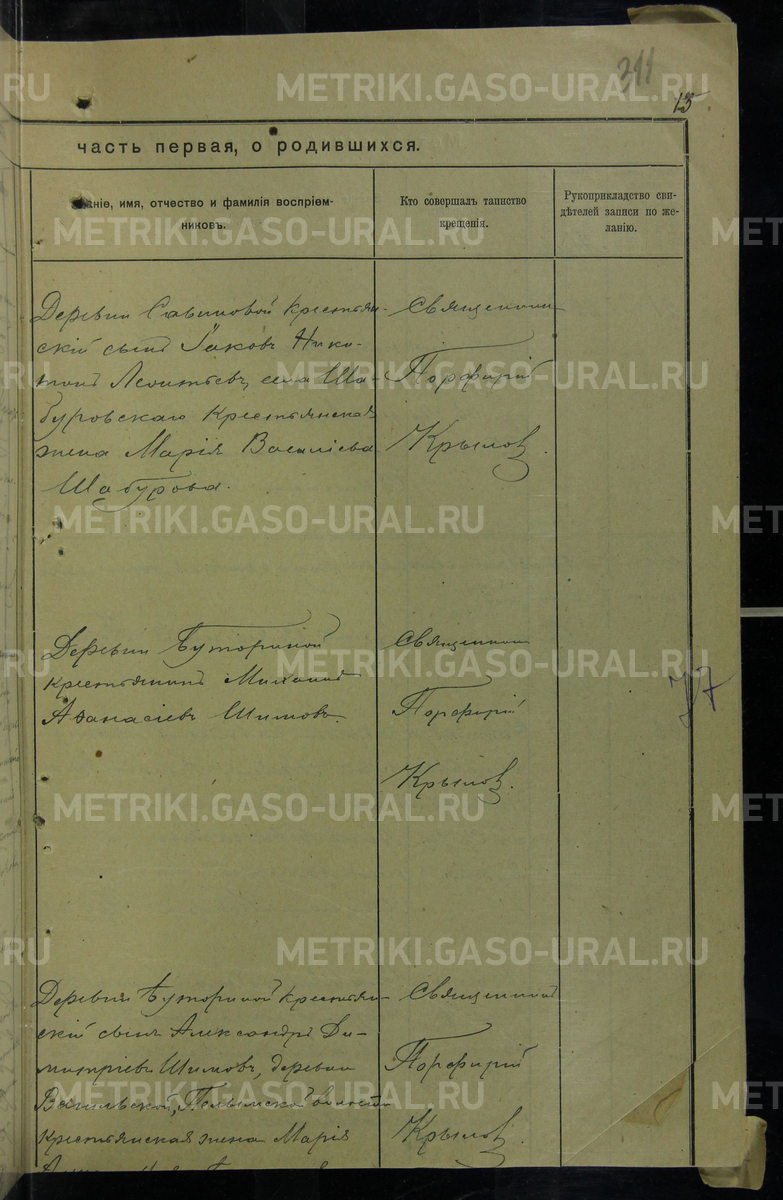 311
15
часть первая, о родившихся.
Званіе, имя, отчество и фамилія воспріем-
никовъ.
Кто совершалъ таинство
крещенія.
Рукоприкладство сви-
дѣтелей записи по же-
ланію.
Деревни Савиновой крестьян-
скій сынъ Іаковъ Ники-
тинъ Леонтьевъ, села Ша-
буровскаго крестьянская
жена Марія Василіева
Шабурова.
Священникъ
Порфирій
Крыловъ.
Деревни Буториной
крестьянинъ Михаилъ
Аѳанасіевъ Шимовъ.
Священникъ
Порфирій
Крыловъ.
77
Деревни Буториной крестьян-
скій сынъ Александръ Ди-
митріевъ Шимовъ, деревни
Пелымской волости
крестьянская жена Марія
Священникъ
Порфирій
Крыловъ.
METRIKI.GASO-URAL.RU